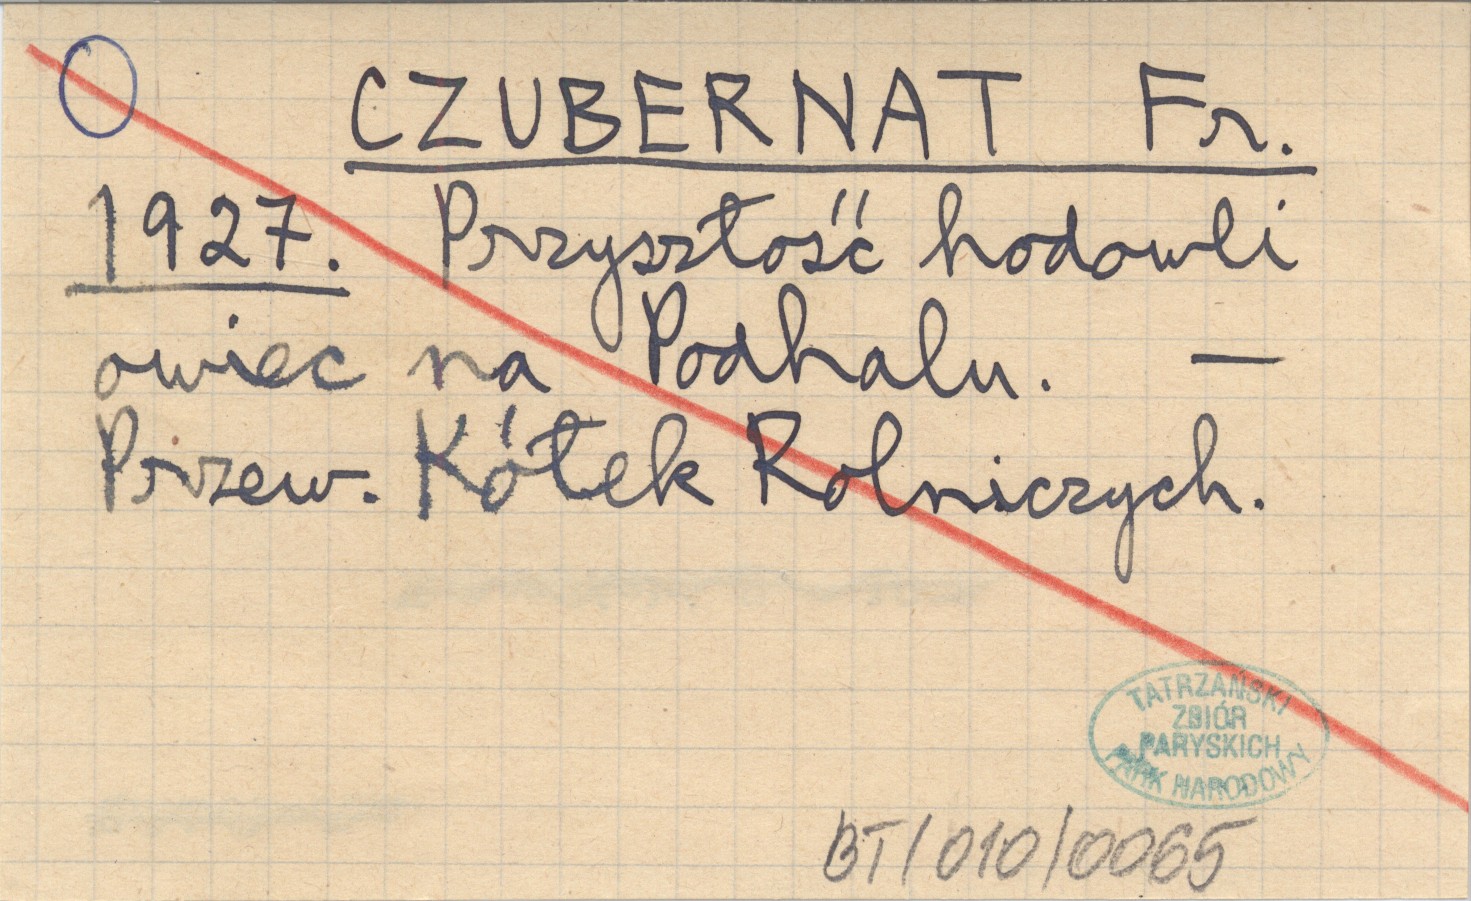 CZUBERNAT Fr.
1927. Przyszłość hodowli
owiec na Podhalu. —
Przew. Kółek Rolniczych.
TATRZAŃSKI
ZBIÓR
PARYSKICH
PARK NARODOWY
BT/010/0065